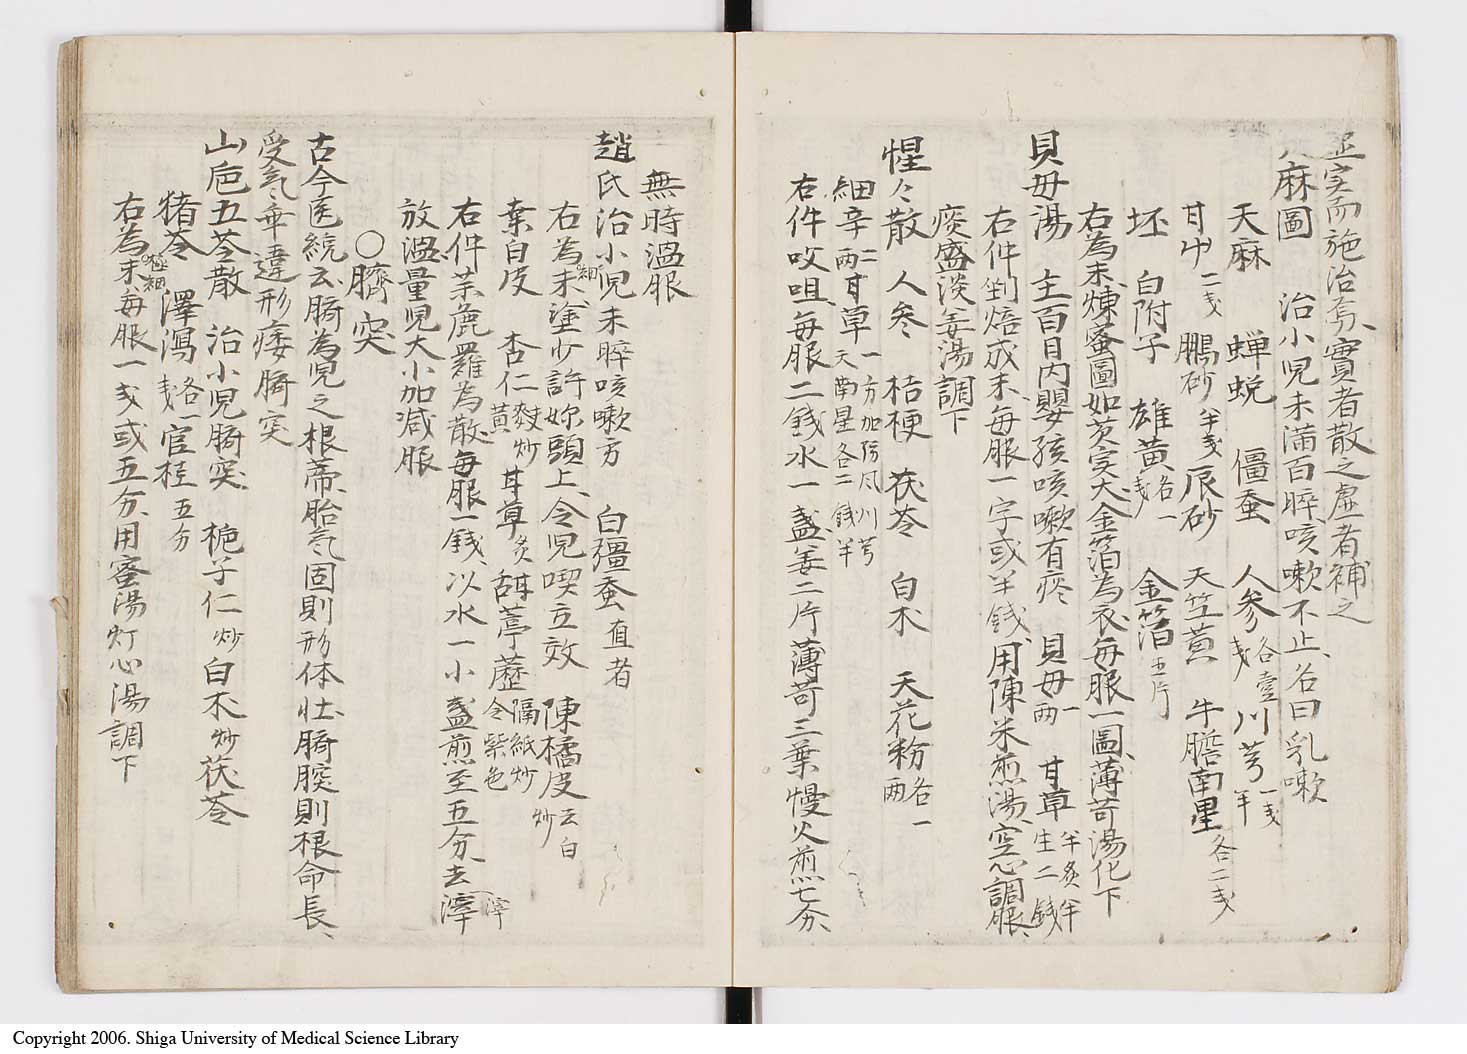 虚実而施治焉、實者散之虚者補之
天麻圓　治小児未満百晬咳嗽不止、名曰乳嗽
天麻　蝉蛻　僵蚕　人参各壹戔川芎一戔半
甘中二戔　鵬砂半戔辰砂　天竺黄　牛膽南星各二戔
坯　白附子　雄黄各一戔　金箔五片
右為末煉蜜圓如芡実大、金箔為衣、毎服一圓、薄苛湯化下
貝母湯　主百日内嬰孩咳嗽有痰　貝母一両　甘草半炙半生二銭
右件剉焙成末、毎服一字或半銭、用陳米煎湯、空心調服、
痰盛淡姜湯調下
惺々散　人参　桔梗　茯苓　白朮　天花粉各一両
細辛二両甘草一方加防風川芎天南星各二銭半
右件㕮咀、毎服二銭水一盞、姜二片薄苛三葉慢火煎七分、
無時温服
趙氏治小児未晬咳嗽方　白殭蚕直者
右為細末、塗少許妳頭上、令児喫立效　陳橘皮去白炒
桒白皮　杏仁麸炒黄　甘草炙　甜葶藶隔紙炒令紫色
右件羊麁羅為散、毎服一銭、以水一小盞煎至五分、去滓
放温、量児大小加减服
〇臍突
古今医統云臍為児之根蒂、胎氣固則形体壮、臍腔則根命長、
受氣乖違形痿臍突
山巵五苓散　治小児臍突　梔子仁炒白朮炒茯苓
猪苓　澤瀉各一戔官桂五分
右為極細末、毎服一戔或五分、用蜜湯灯心湯調下
Copyright 2006. Shiga University of Medical Science Library